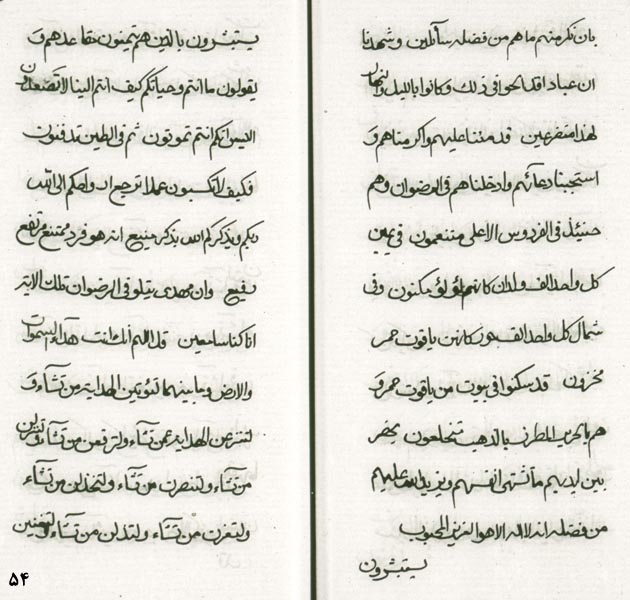 بان نكرمنهم ما هم من فضله سآئلين وشهدنا
ان عبادا قد الحوا فى ذلك وكانوا بالليل والنهار
لهذا متضرعين قد مننا عليهم واكرمناهم و
استجبنا دعآئهم وادخلناهم فى الرضوان وهم
حينئذ فى الفردوس الاعلى متنعمون فى يمين
كل واحد الف ولدان كانهم لؤلؤ مكنون وفى
شمال كل واحد الف حور كانهن ياقوت حمر
مخزون قد سكنوا فى بيوت من ياقوت حمر و
هم بالحرير المطرز بالذهب متخلعون يحضر
بين ايديهم ما تشتهى انفسهم ويزيد الله عليهم
من فضله انه لا اله الا هو العزيز المحبوب
يستبشرون
يستبشرون بالذين هم يتمنون مقاعدهم و
يقولون ما انتم وحياتكم كيف انتم الينا لا تصعدون
اليس انكم انتم تموتون ثم فى الطين تدفنون
فكيف لا تكسبون عملا ترجع ارواحكم الى الله
ربكم ويذكركم الله بذكر منيع انه هو فرد ممتنع مرتفع
رفيع وان مهدى يتلو فى الرضوان تلك الاية
انا كنا سامعين قل اللهم انك انت السموات
والارض وما بينهما لتؤتين الهداية من تشآء و
لتنزعن الهداية عمن تشآء ولترفعن من تشآء ولتنزلن
من تشآء ولتنصرن من تشآء ولتخذلن من تشآء
ولتعزن من تشآء ولتذلن من تشآء ولتغنين
۵۴